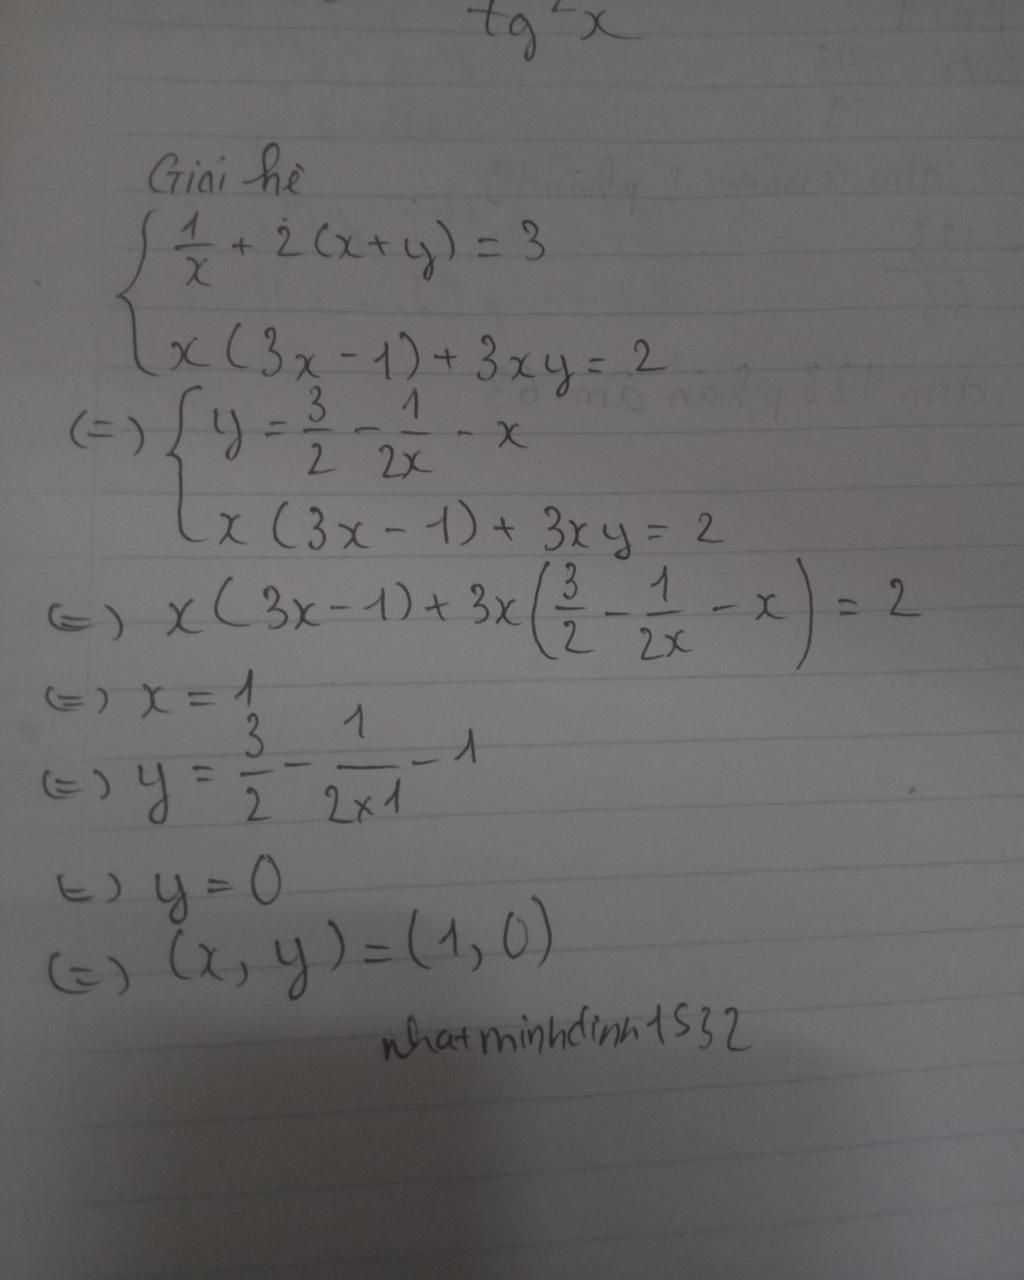 tg²x
Giải hệ
{ 1/x + 2(x+y) = 3
x(3x-1) + 3xy = 2
(=) { y = 3/2 - 1/2x - x
x(3x-1) + 3xy = 2
(=) x(3x-1) + 3x(3/2 - 1/2x - x) = 2
(=) x = 1
(=) y = 3/2 - 1/2x1 - 1
(=) y = 0
(=) (x, y) = (1, 0)
nhatminhdinh1532